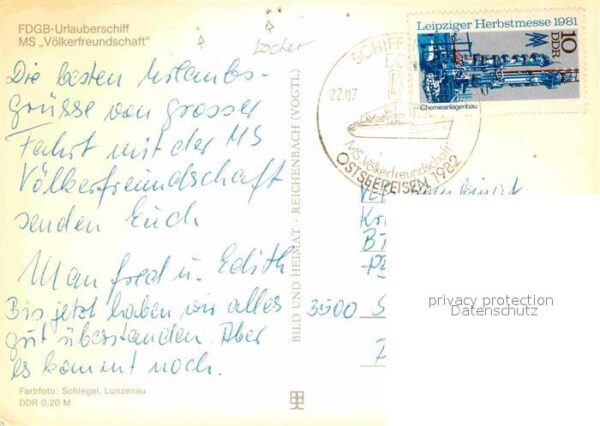 FDGB-Urlauberschiff
MS „Völkerfreundschaft"
Löcher
Die besten Urlaubs-
grüsse von grosser
Fahrt mit der MS
Völkerfreundschaft
senden Euch
Manfred u. Edith
Bis jetzt haben wir alles
gut überstanden. Aber
es kommt noch.
Farbfoto: Schlegel, Lunzenau
DDR 0,20 M
BILD UND HEIMAT · REICHENBACH (VOGTL)
Leipziger Herbstmesse 1981
10
DDR
Chemieanlagenbau
SCHIFF
22.-07
MS „Völkerfreundschaft"
OSTSEEREISEN 1982
3500 S
privacy protection
Datenschutz